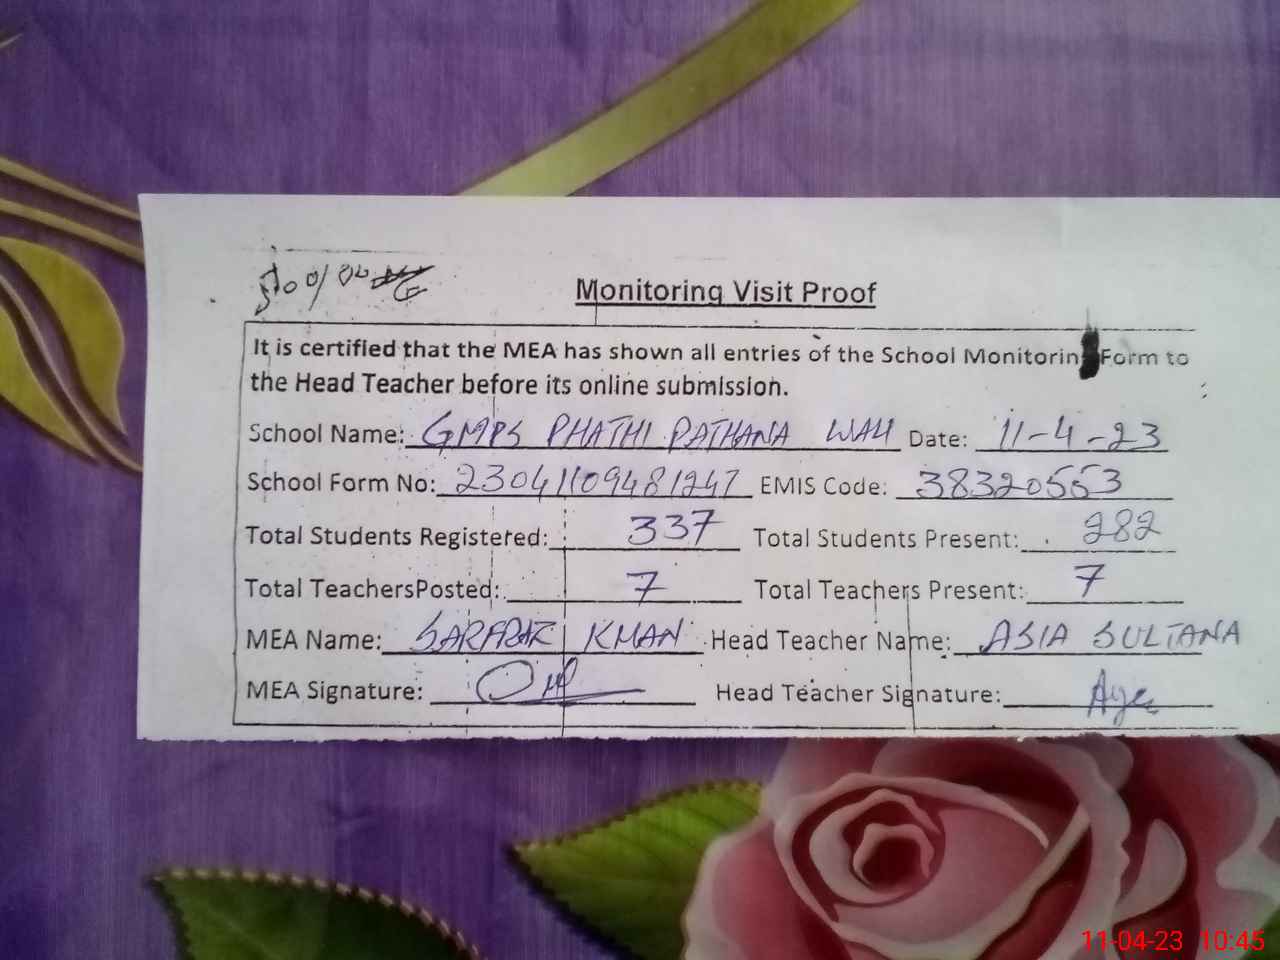 Monitoring Visit Proof
It is certified that the MEA has shown all entries of the School Monitorin Form to
the Head Teacher before its online submission.
School Name: GMPS PHATHI PATHANA WALI Date: 11-4-23
School Form No: 23041109481247 EMIS Code: 38320553
Total Students Registered: 337 Total Students Present: 282
Total TeachersPosted: 7 Total Teachers Present: 7
MEA Name: SARFRAZ KHAN Head Teacher Name: ASIA SULTANA
MEA Signature: Head Teacher Signature:
11-04-23 10:45